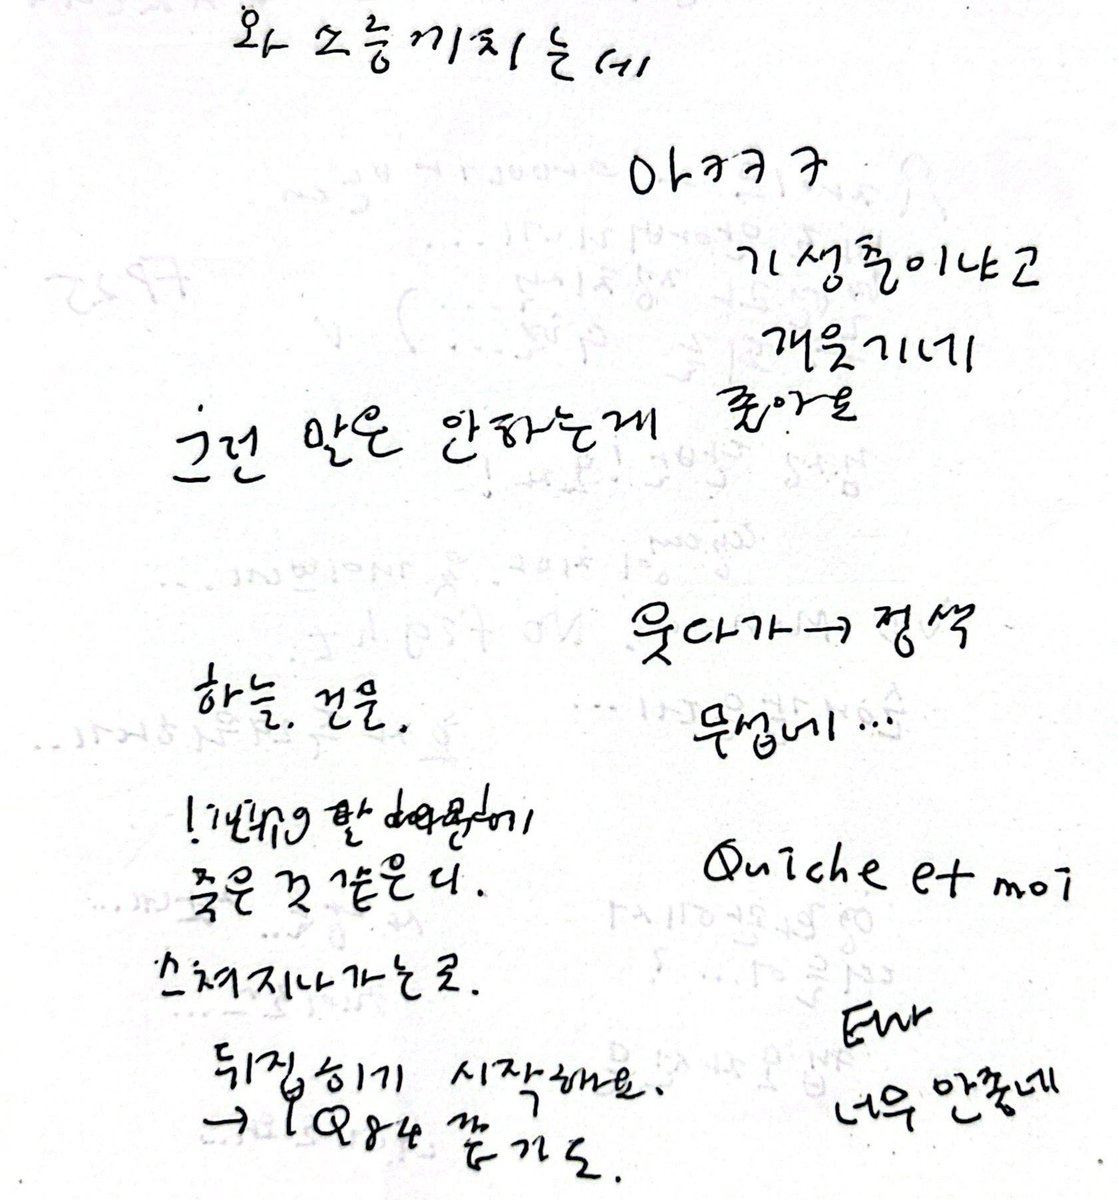 와 소름끼치는데
아ㅋㅋㅋ
기생충이냐고
개웃기네
그런 말은 안하는게 좋아요
웃다가 → 정색
무섭네...
하늘. 건물.
죽은 것 같은 디.
Quiche et moi
스쳐지나가는 로.
Ewa
너무 안좋네
뒤집히기 시작해요.
→ 1Q84 같기도.